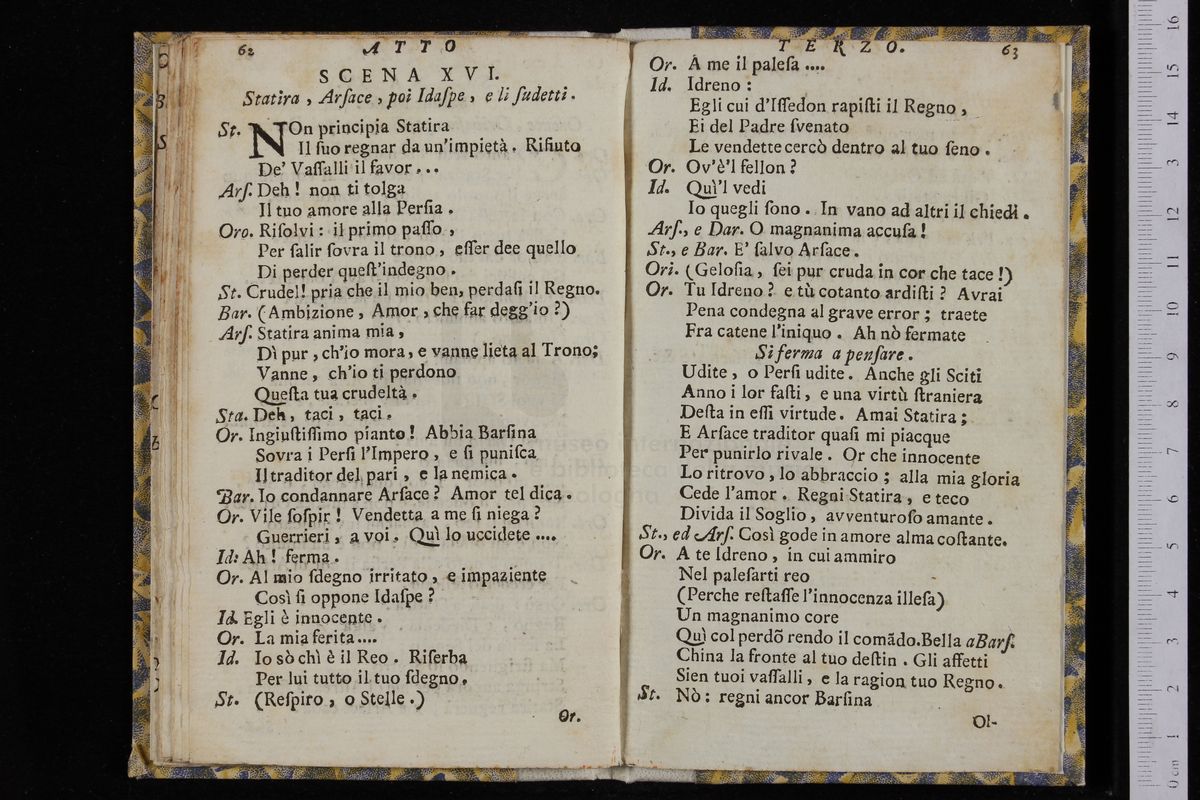 62 ATTO
SCENA XVI.
Statira, Arſace, poi Idaſpe, e li ſudetti.
St. NOn principia Statira
Il ſuo regnar da un'impietà. Rifiuto
De' Vaſſalli il favor...
Arſ. Deh! non ti tolga
Il tuo amore alla Perſia.
Oro. Riſolvi: il primo paſſo,
Per ſalir ſovra il trono, eſſer dee quello
Di perder queſt'indegno.
St. Crudel! pria che il mio ben, perdaſi il Regno.
Bar. (Ambizione, Amor, che far degg'io?)
Arſ. Statira anima mia,
Dì pur, ch'io mora, e vanne lieta al Trono;
Vanne, ch'io ti perdono
Queſta tua crudeltà.
Sta. Deh, taci, taci.
Or. Ingiuſtiſſimo pianto! Abbia Barſina
Sovra i Perſi l'Impero, e ſi puniſca
Il traditor del pari, e la nemica.
Bar. Io condannare Arſace? Amor tel dica.
Or. Vile ſoſpir! Vendetta a me ſi niega?
Guerrieri, a voi. Quì lo uccidete....
Id: Ah! ferma.
Or. Al mio ſdegno irritato, e impaziente
Così ſi oppone Idaſpe?
Id. Egli è innocente.
Or. La mia ferita....
Id. Io sò chì è il Reo. Riſerba
Per lui tutto il tuo ſdegno.
St. (Reſpiro, o Stelle.)
Or.
TERZO. 63
Or. A me il paleſa....
Id. Idreno:
Egli cui d'Iſſedon rapiſti il Regno,
Ei del Padre ſvenato
Le vendette cercò dentro al tuo ſeno.
Or. Ov'è'l fellon?
Id. Quì'l vedi
Io quegli ſono. In vano ad altri il chiedi.
Arſ., e Dar. O magnanima accuſa!
St., e Bar. E' ſalvo Arſace.
Ori. (Geloſia, ſei pur cruda in cor che tace!)
Or. Tu Idreno? e tù cotanto ardiſti? Avrai
Pena condegna al grave error; traete
Fra catene l'iniquo. Ah nò fermate
Si ferma a penſare.
Udite, o Perſi udite. Anche gli Sciti
Anno i lor faſti, e una virtù ſtraniera
Deſta in eſſi virtude. Amai Statira;
E Arſace traditor quaſi mi piacque
Per punirlo rivale. Or che innocente
Lo ritrovo, lo abbraccio; alla mia gloria
Cede l'amor. Regni Statira, e teco
Divida il Soglio, avventuroſo amante.
St., ed Arſ. Così gode in amore alma coſtante.
Or. A te Idreno, in cui ammiro
Nel paleſarti reo
(Perche reſtaſſe l'innocenza illeſa)
Un magnanimo core
Quì col perdõ rendo il comãdo. Bella a Barſ.
China la fronte al tuo deſtin. Gli affetti
Sien tuoi vaſſalli, e la ragion tuo Regno.
St. Nò: regni ancor Barſina
Ol-